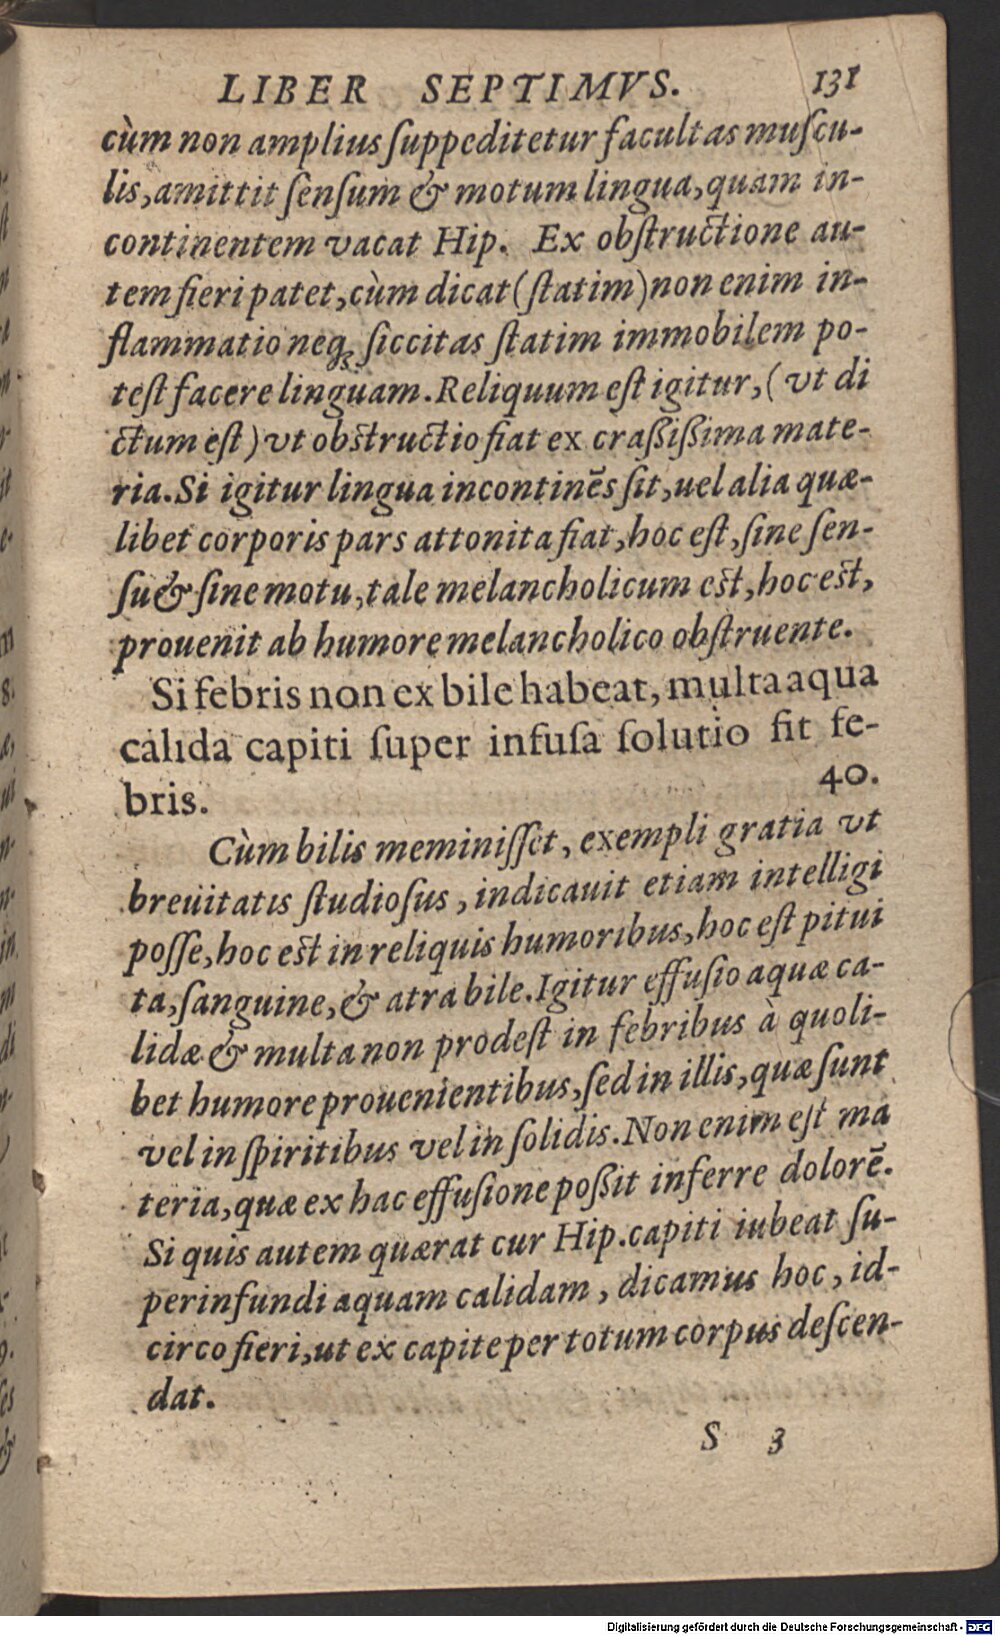 LIBER SEPTIMVS. 131
cùm non amplius ſuppeditetur facultas muſcu-
lis, amittit ſenſum & motum lingua, quam in-
continentem vacat Hip. Ex obſtructione au-
tem fieri patet, cùm dicat (ſtatim) non enim in-
flammatio neqꝫ ſiccitas ſtatim immobilem po-
teſt facere linguam. Reliquum eſt igitur, (vt di
ctum eſt) vt obstructio fiat ex craſſiſſima mate-
ria. Si igitur lingua incontinẽs ſit, uel alia quæ-
libet corporis pars attonita fiat, hoc eſt, ſine ſen-
ſu & ſine motu, tale melancholicum est, hoc est,
prouenit ab humore melancholico obſtruente.
Si febris non ex bile habeat, multa aqua
calida capiti ſuper infuſa ſolutio fit fe-
bris. 40.
Cùm bilis meminiſſet, exempli gratia vt
breuitatis ſtudioſus, indicauit etiam intelligi
poſſe, hoc est in reliquis humoribus, hoc eſt pitui
ta, ſanguine, & atra bile. Igitur effuſio aquæ ca-
lidæ & multa non prodeſt in febribus à quoli-
bet humore prouenientibus, ſed in illis, quæ ſunt
vel in ſpiritibus vel in ſolidis. Non enim eſt ma
teria, quæ ex hac effuſione poſſit inferre dolorẽ.
Si quis autem quærat cur Hip. capiti iubeat ſu-
perinfundi aquam calidam, dicamus hoc, id-
circo fieri, ut ex capite per totum corpus deſcen-
dat.
S 3
Digitalisierung gefördert durch die Deutsche Forschungsgemeinschaft - DFG